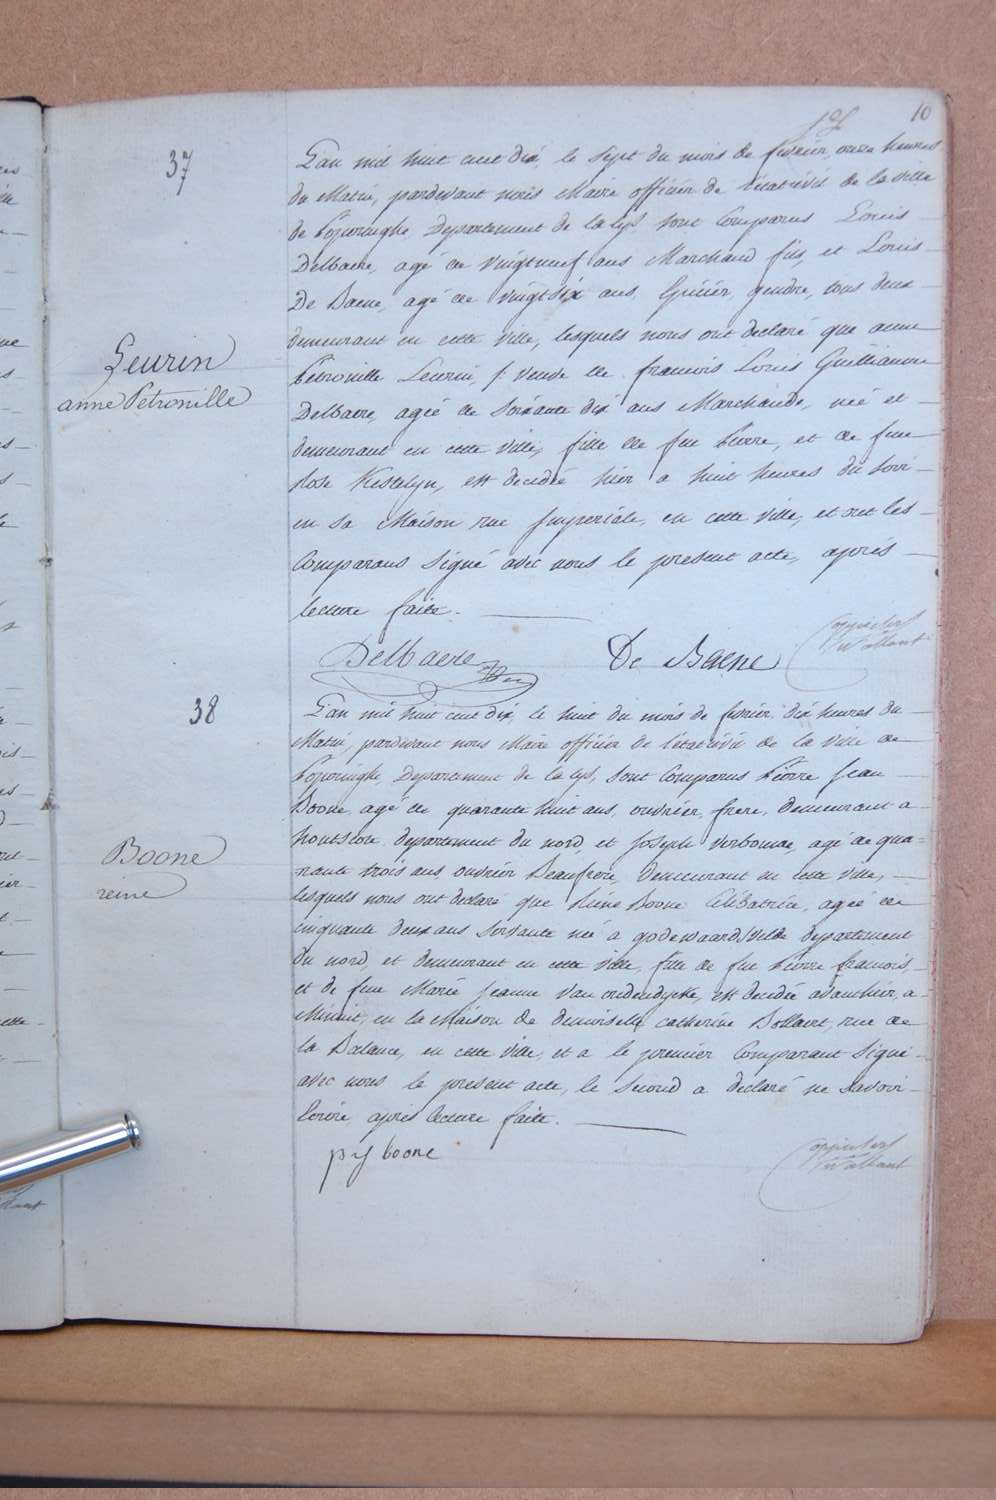 10
37
L'an mil huit cent dix, le sept du mois de fevrier, onze heures
du Matin, pardevant nous Maire officier de l'etat civil de la ville
de Poperinghe, Departement de la Lys, sont Comparus Louis
Delbaere, agé de vingt neuf ans Marchand fils, et Louis
De Baene, agé de vingt six ans, Epicier, gendre, tous deux
demeurant en cette ville, lesquels nous ont declaré que anne
Petronille Leurin, veuve de francois Louis Guilliaume
Delbaere, agée de soixante dix ans Marchande, née et
demeurant en cette ville, fille de feu Pierre, et de feue
Rose Kestelyn, est decedée hier a huit heures du soir
en sa Maison rue Imperiale, en cette ville, et ont les
Comparans signé avec nous le present acte, après
lecture faite.
Leurin
anne Petronille
Delbaere
De Baene
38
L'an mil huit cent dix, le huit du mois de fevrier, dix heures du
Matin, pardevant nous Maire officier de l'etat civil de la ville de
Poperinghe, Departement de la Lys, sont Comparus Pierre Jean
Boone, agé de quarante huit ans, ouvrier, frere, demeurant a
hontscote, departement du nord, et Joseph verbomae, agé de qua-
rante trois ans ouvrier Beaufrere, demeurant en cette ville,
lesquels nous ont declaré que Reine Boone Celibatrice, agée de
cinquante deux ans née a godewaardsvelde departement
du nord, et demeurant en cette ville, fille de feu Pierre francois,
et de feue Marie Jeanne est decedée avanthier, a
Minuit, en la Maison de demoiselle catherine Bollaert, rue de
la Balance, en cette ville, et a le premier Comparant signé
avec nous le present acte, le second a declaré ne savoir
Ecrire après lecture faite.
Boone
reine
p j boone